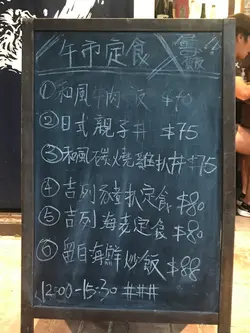 午市定食
①和風牛肉飯 $70
②日式親子丼 $75
③和風炭燒雞扒丼 $75
④吉列豬扒定食 $80
⑤吉列海老定食 $80
⑥留目海鮮炒飯 $88
12:00-15:30 ###